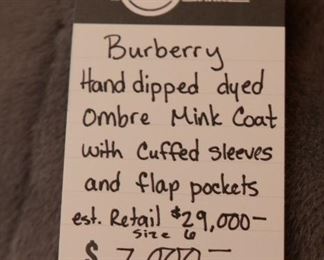 Burberry
Hand dipped dyed
Ombre Mink Coat
with Cuffed sleeves
and flap pockets
est. Retail $29,000-
size 6
$ 7,000-